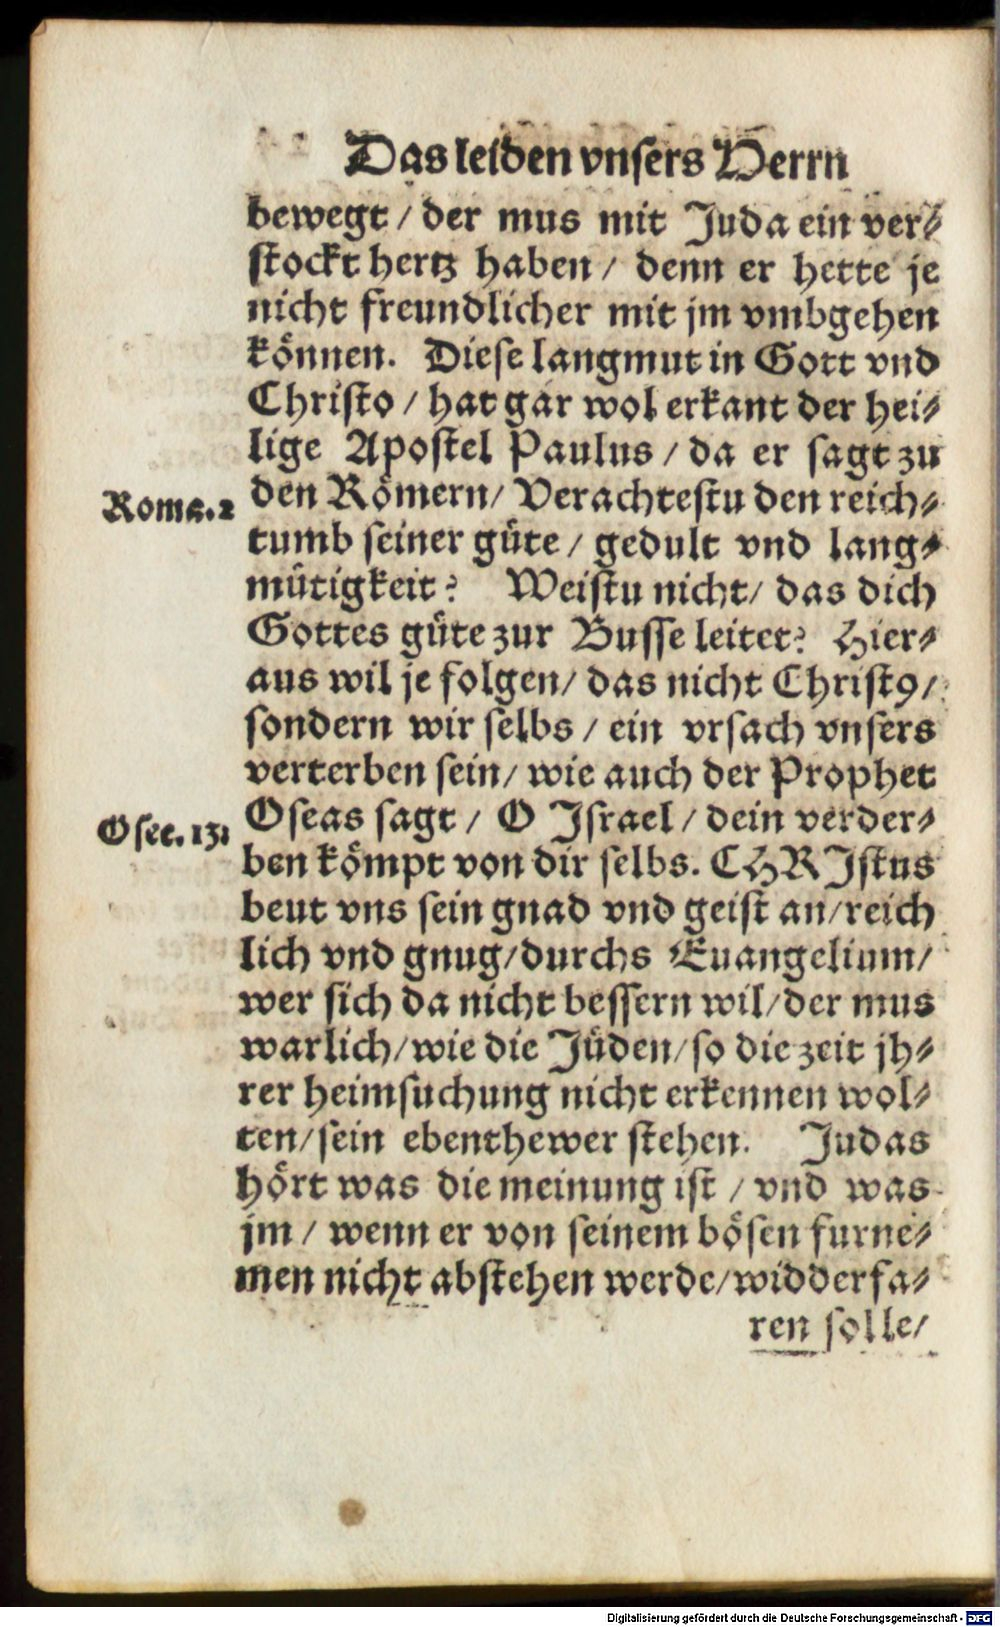 Das leiden vnsers Herrn
bewegt / der mus mit Juda ein ver⸗
stockt hertz haben / denn er hette je
nicht freundlicher mit jm vmbgehen
können. Diese langmut in Gott vnd
Christo / hat gar wol erkant der hei⸗
lige Apostel Paulus / da er sagt zu
Roma. 2
den Römern / Verachtestu den reich⸗
tumb seiner güte / gedult vnd lang⸗
mütigkeit? Weistu nicht / das dich
Gottes güte zur Busse leitet? Hier⸗
aus wil je folgen / das nicht Christꝰ /
sondern wir selbs / ein vrsach vnsers
verterben sein / wie auch der Prophet
Osee. 13.
Oseas sagt / O Israel / dein verder⸗
ben kömpt von dir selbs. CHRIstus
beut vns sein gnad vnd geist an / reich
lich vnd gnug / durchs Euangelium /
wer sich da nicht bessern wil / der mus
warlich / wie die Jüden / so die zeit jh⸗
rer heimsuchung nicht erkennen wol⸗
ten / sein ebenthewer stehen. Judas
hört was die meinung ist / vnd was
jm / wenn er von seinem bösen furne⸗
men nicht abstehen werde / widderfa⸗
ren solle /
Digitalisierung gefördert durch die Deutsche Forschungsgemeinschaft - DFG